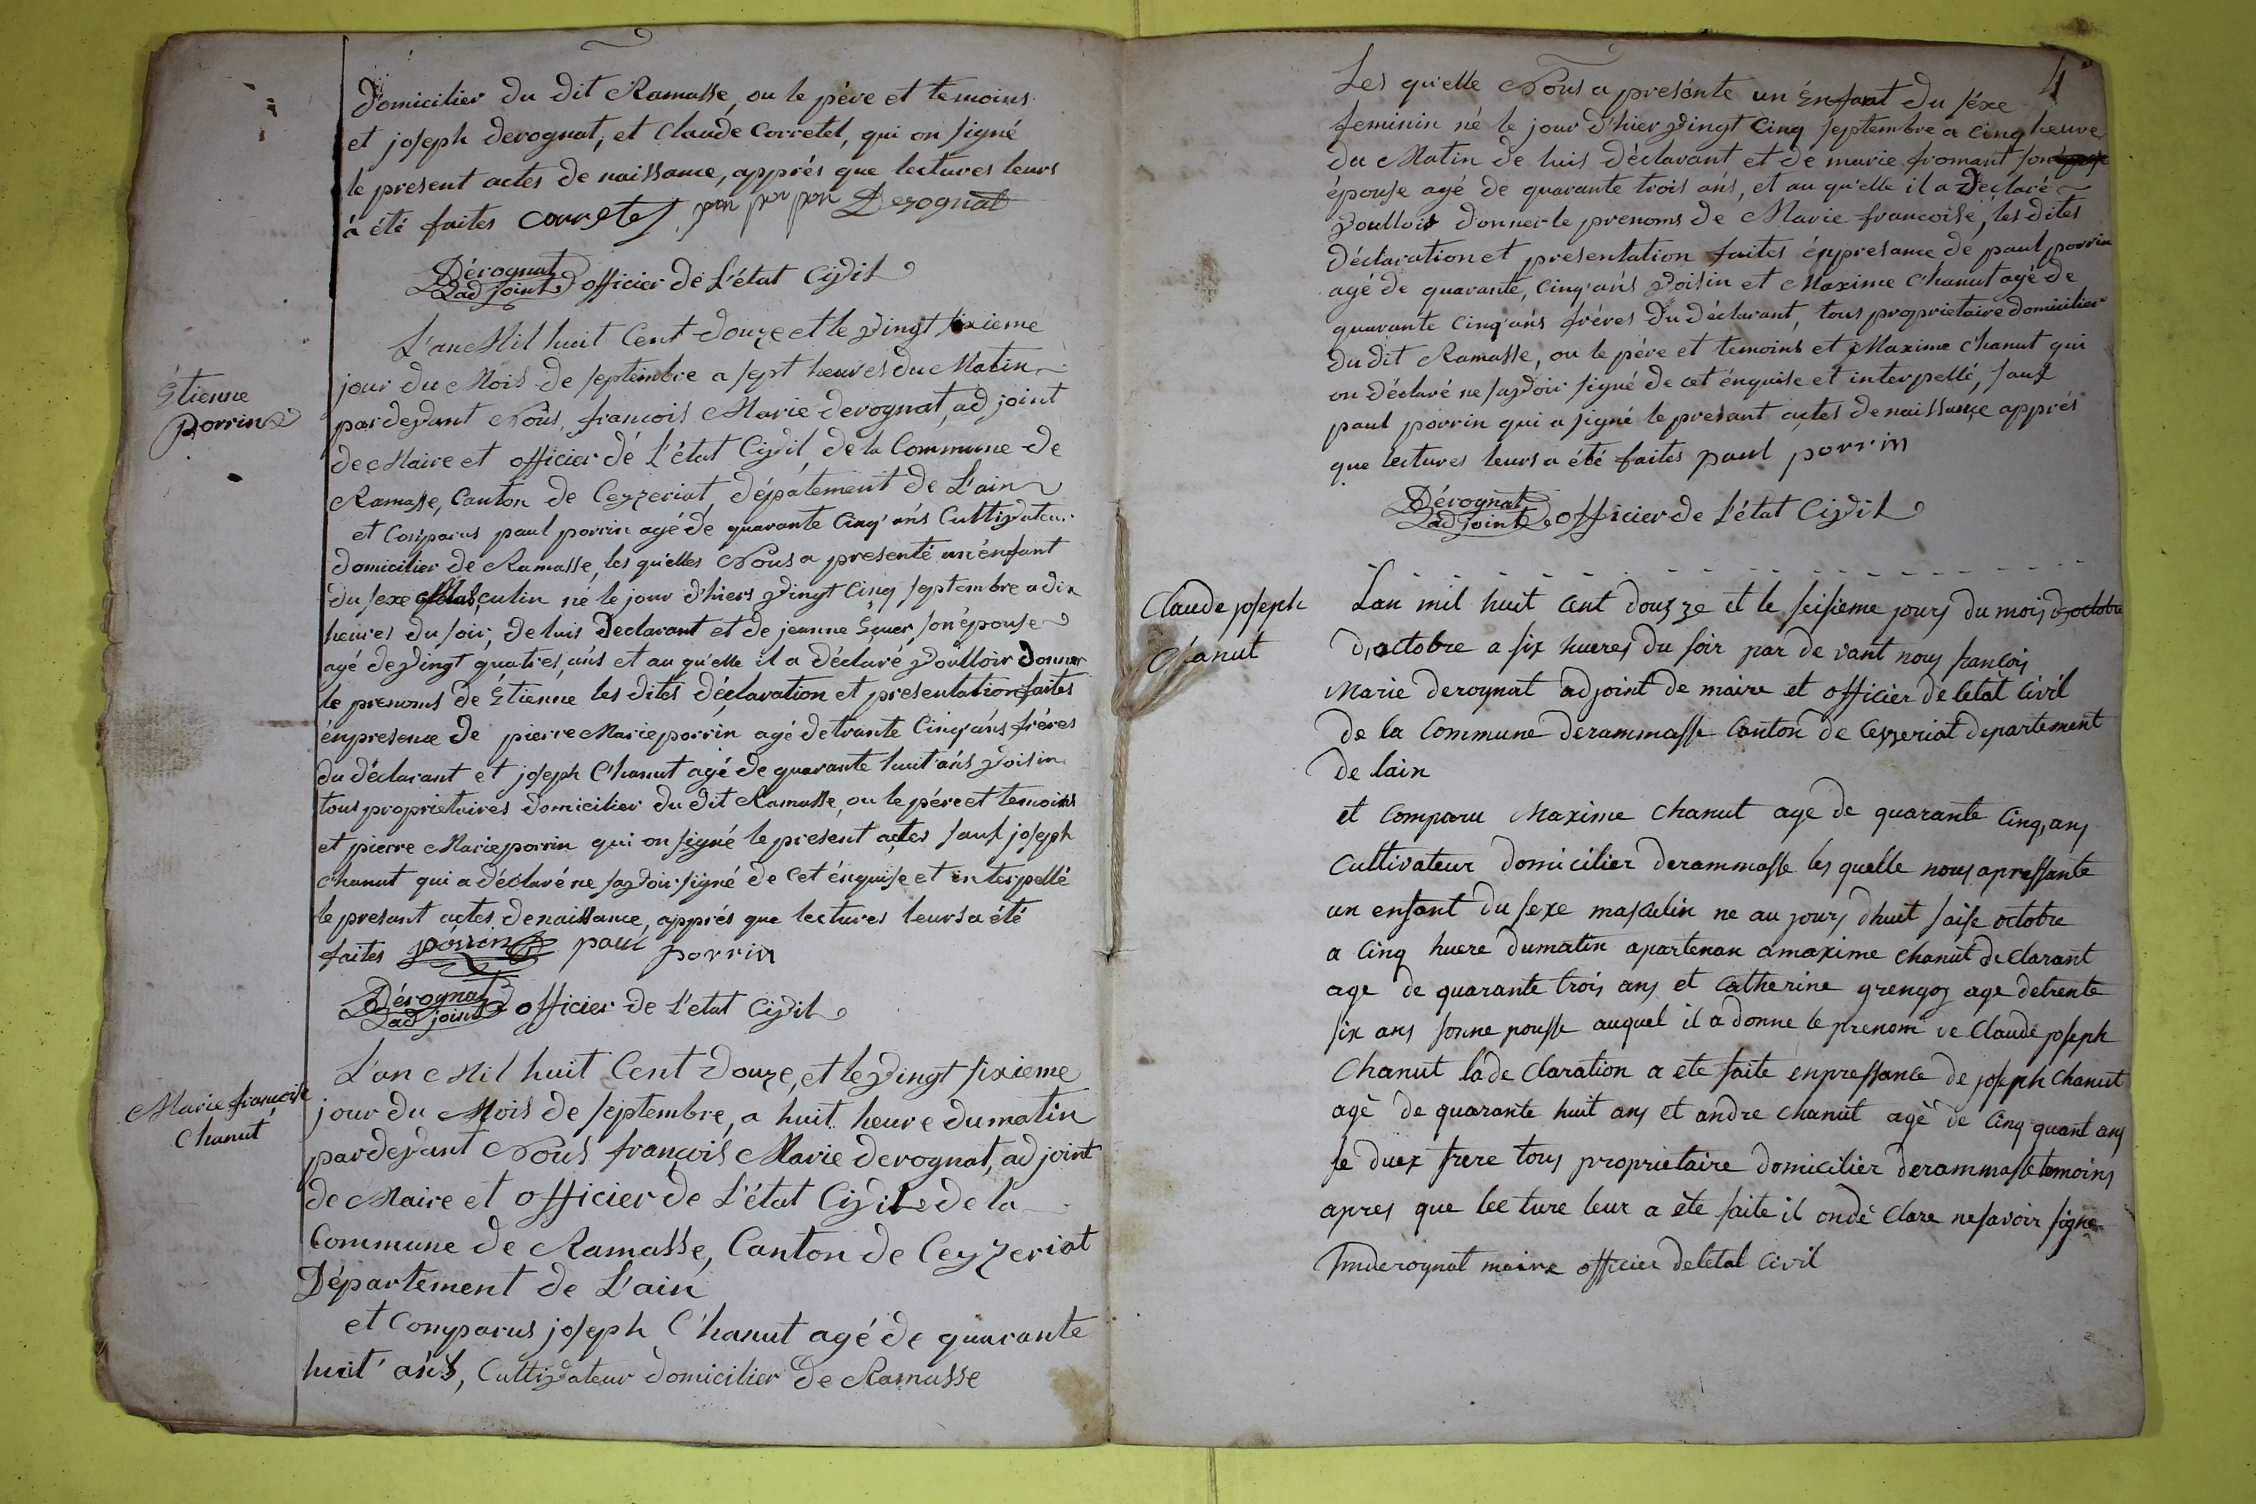 domicilier du dit Ramasse, ou le pére et temoins
et joseph derognat, et Claude Corretel, qui on signé
le present actes de naissance, apprés que lectures leurs
à été faites Corretel Derognat
Dérognat
adjoint officier de L'état Civil
L'an Mil huit Cent douze et le vingt sixieme
jour du Mois de septembre a sept heures du Matin
Étienne
Porrin
pardevant Nous, francois Marie derognat, adjoint
de Maire et officier dé L'état Civil de la Commune de
Ramasse, Canton de Ceyzeriat, dépatement de L'ain
et Comparus paul porrin agé de quarante Cinq ans Cultivateur
domicilier de Ramasse, les qu'elles Nous a presenté un énfant
du sexe Masculin né le jour d'hiers vingt Cinq septembre a dix
heures du soir, de luis Declarant et de jeanne Éguer son épouse
agé de vingt quatres, ans et au qu'elle il a déclaré voulloir donner
le prenoms de Étienne les dites déclaration et presentation faites
énpresence de pierre Marie porrin agé de trante Cinq ans fréres
du déclarant et joseph Chanut agé de quarante huit ans voisin
tous proprietaires domicilier du dit Ramasse, ou le pére et temoins
et pierre Marie porrin qui on signé le present actes sauf joseph
chanut qui a déclaré ne savoir signé de cet énquise et interpellé
le presant actes de naissance, apprés que lectures leurs a été
faites porrin paul porrin
Dérognat
adjoint officier de L'etat Civil
Marie francoise
Chanut
L'an Mil huit Cent douze, et le vingt sixieme
jour du Mois de septembre, a huit heure du matin
pardevant Nous françois Marie derognat, adjoint
de Maire et officier de L'état Civil de la
Commune de Ramasse, Canton de Ceyzeriat
Département de L'ain
et Comparus joseph Chanut agé de quarante
huit ans, Cultivateur domicilier de Ramasse
4
Les qu'elle Nous a presénte un Énfant du séxe
feminin né le jour d'hier vingt Cinq septembre a Cinq heure
du Matin de luis déclarant et de marie fromant son
épouse agé de quarante trois ans, et au qu'elle il a déclaré
voulloir donner le prenoms de Marie francoise, les dites
déclaration et presentation faites énpresance de paul porrin
agé de quarante, Cinq ans voisin et Maxime Chanut agé de
quarante Cinq ans fréres du déclarant, tous proprietaire domicilier
du dit Ramasse, ou le pére et temoins et Maxime Chanut qui
on déclaré ne savoir signé de cet énquise et interpellé, sauf
paul porrin qui a signé le presant actes de naissance apprés
que lectures leurs a été faites paul porrin
Dérognat
adjoint officier de L'état Civil
Claude joseph
Chanut
Lan mil huit cent douzze et le seisieme jours du mois doctobre
doctobre a six hueres du soir par de vant nous francois
Marie derognat adjoint de maire et officier de letat Civil
de la Commune derammasse Canton de Ceyzeriat departement
de lain
et Comparu Maxime Chanut age de quarante Cinq ans
Cultivateur domicilier derammasse les quelle nous apressante
un enfant du sexe masculin ne au jours dhuit saise octobre
a Cinq huere dumatin apartenan amaxime Chanut declarant
age de quarante trois ans et Catherine grengoz age detrente
six ans sonne pousse auquel il a donne le prenom de Claude joseph
Chanut lade claration a ete faite enpressance de joseph Chanut
agé de quarante huit ans et andre chanut agé de Cinq quant ans
se duex frere tous proprietaire domicilier derammasse temoins
apres que lecture leur a ete faite il ondé clare nesavoir signe
fmderognat maire officier deletat Civil